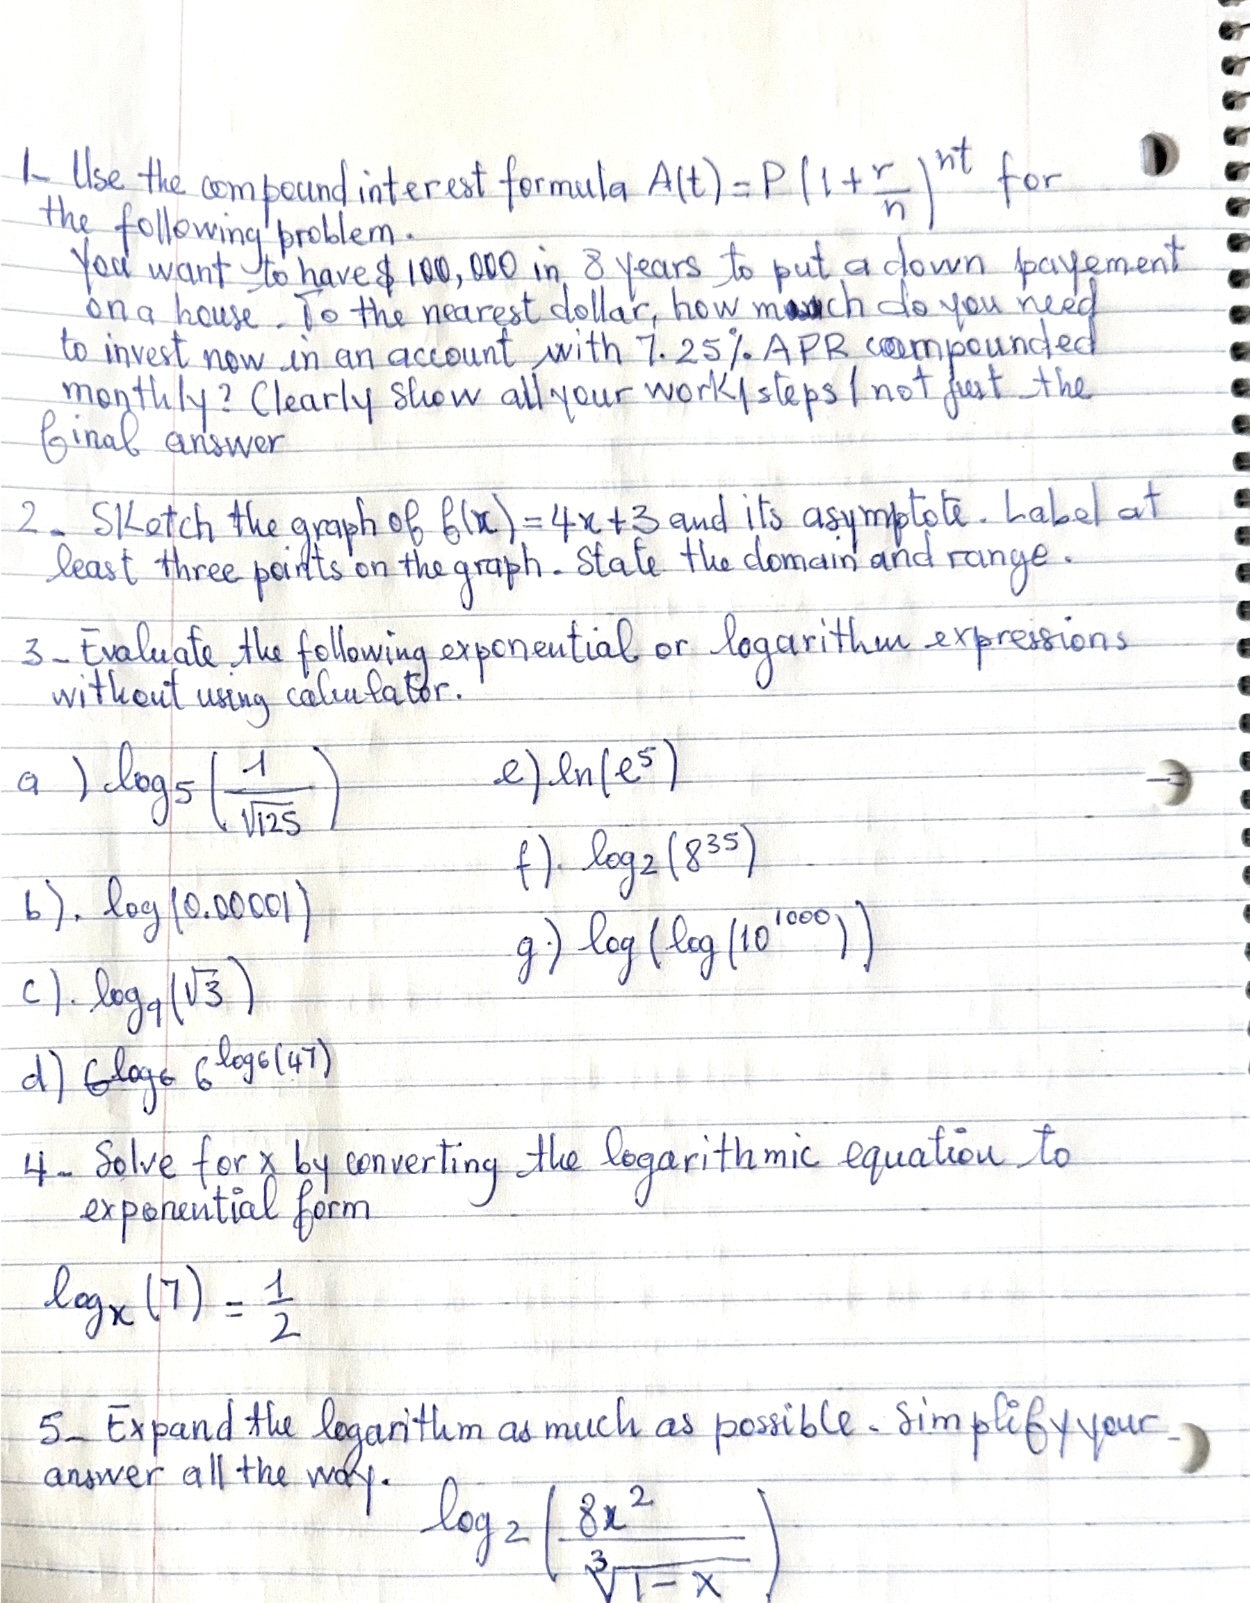 1- Use the compound interest formula A(t) = P(1 + r/n)^nt for
the following problem.
You want to have $ 100,000 in 8 years to put a down payement
on a house. To the nearest dollar, how much do you need
to invest now in an account with 7.25% APR compounded
monthly? Clearly show all your work/steps/not just the
final answer
2- Sketch the graph of f(x) = 4x+3 and its asymptote. Label at
least three points on the graph. State the domain and range.
3- Evaluate the following exponential or logarithm expressions
without using calculator.
a) log₅(1/√125)
e) ln(e⁵)
f). log₂(8³⁵)
b). log(0.00001)
g.) log(log(10¹⁰⁰⁰))
c). log₉(√3)
d) 6log6 6^log6(47)
4- Solve for x by converting the logarithmic equation to
exponential form
logₓ(7) = 1/2
5- Expand the logarithm as much as possible. Simplify your
answer all the way.
log₂(8x²/∛(1-x))